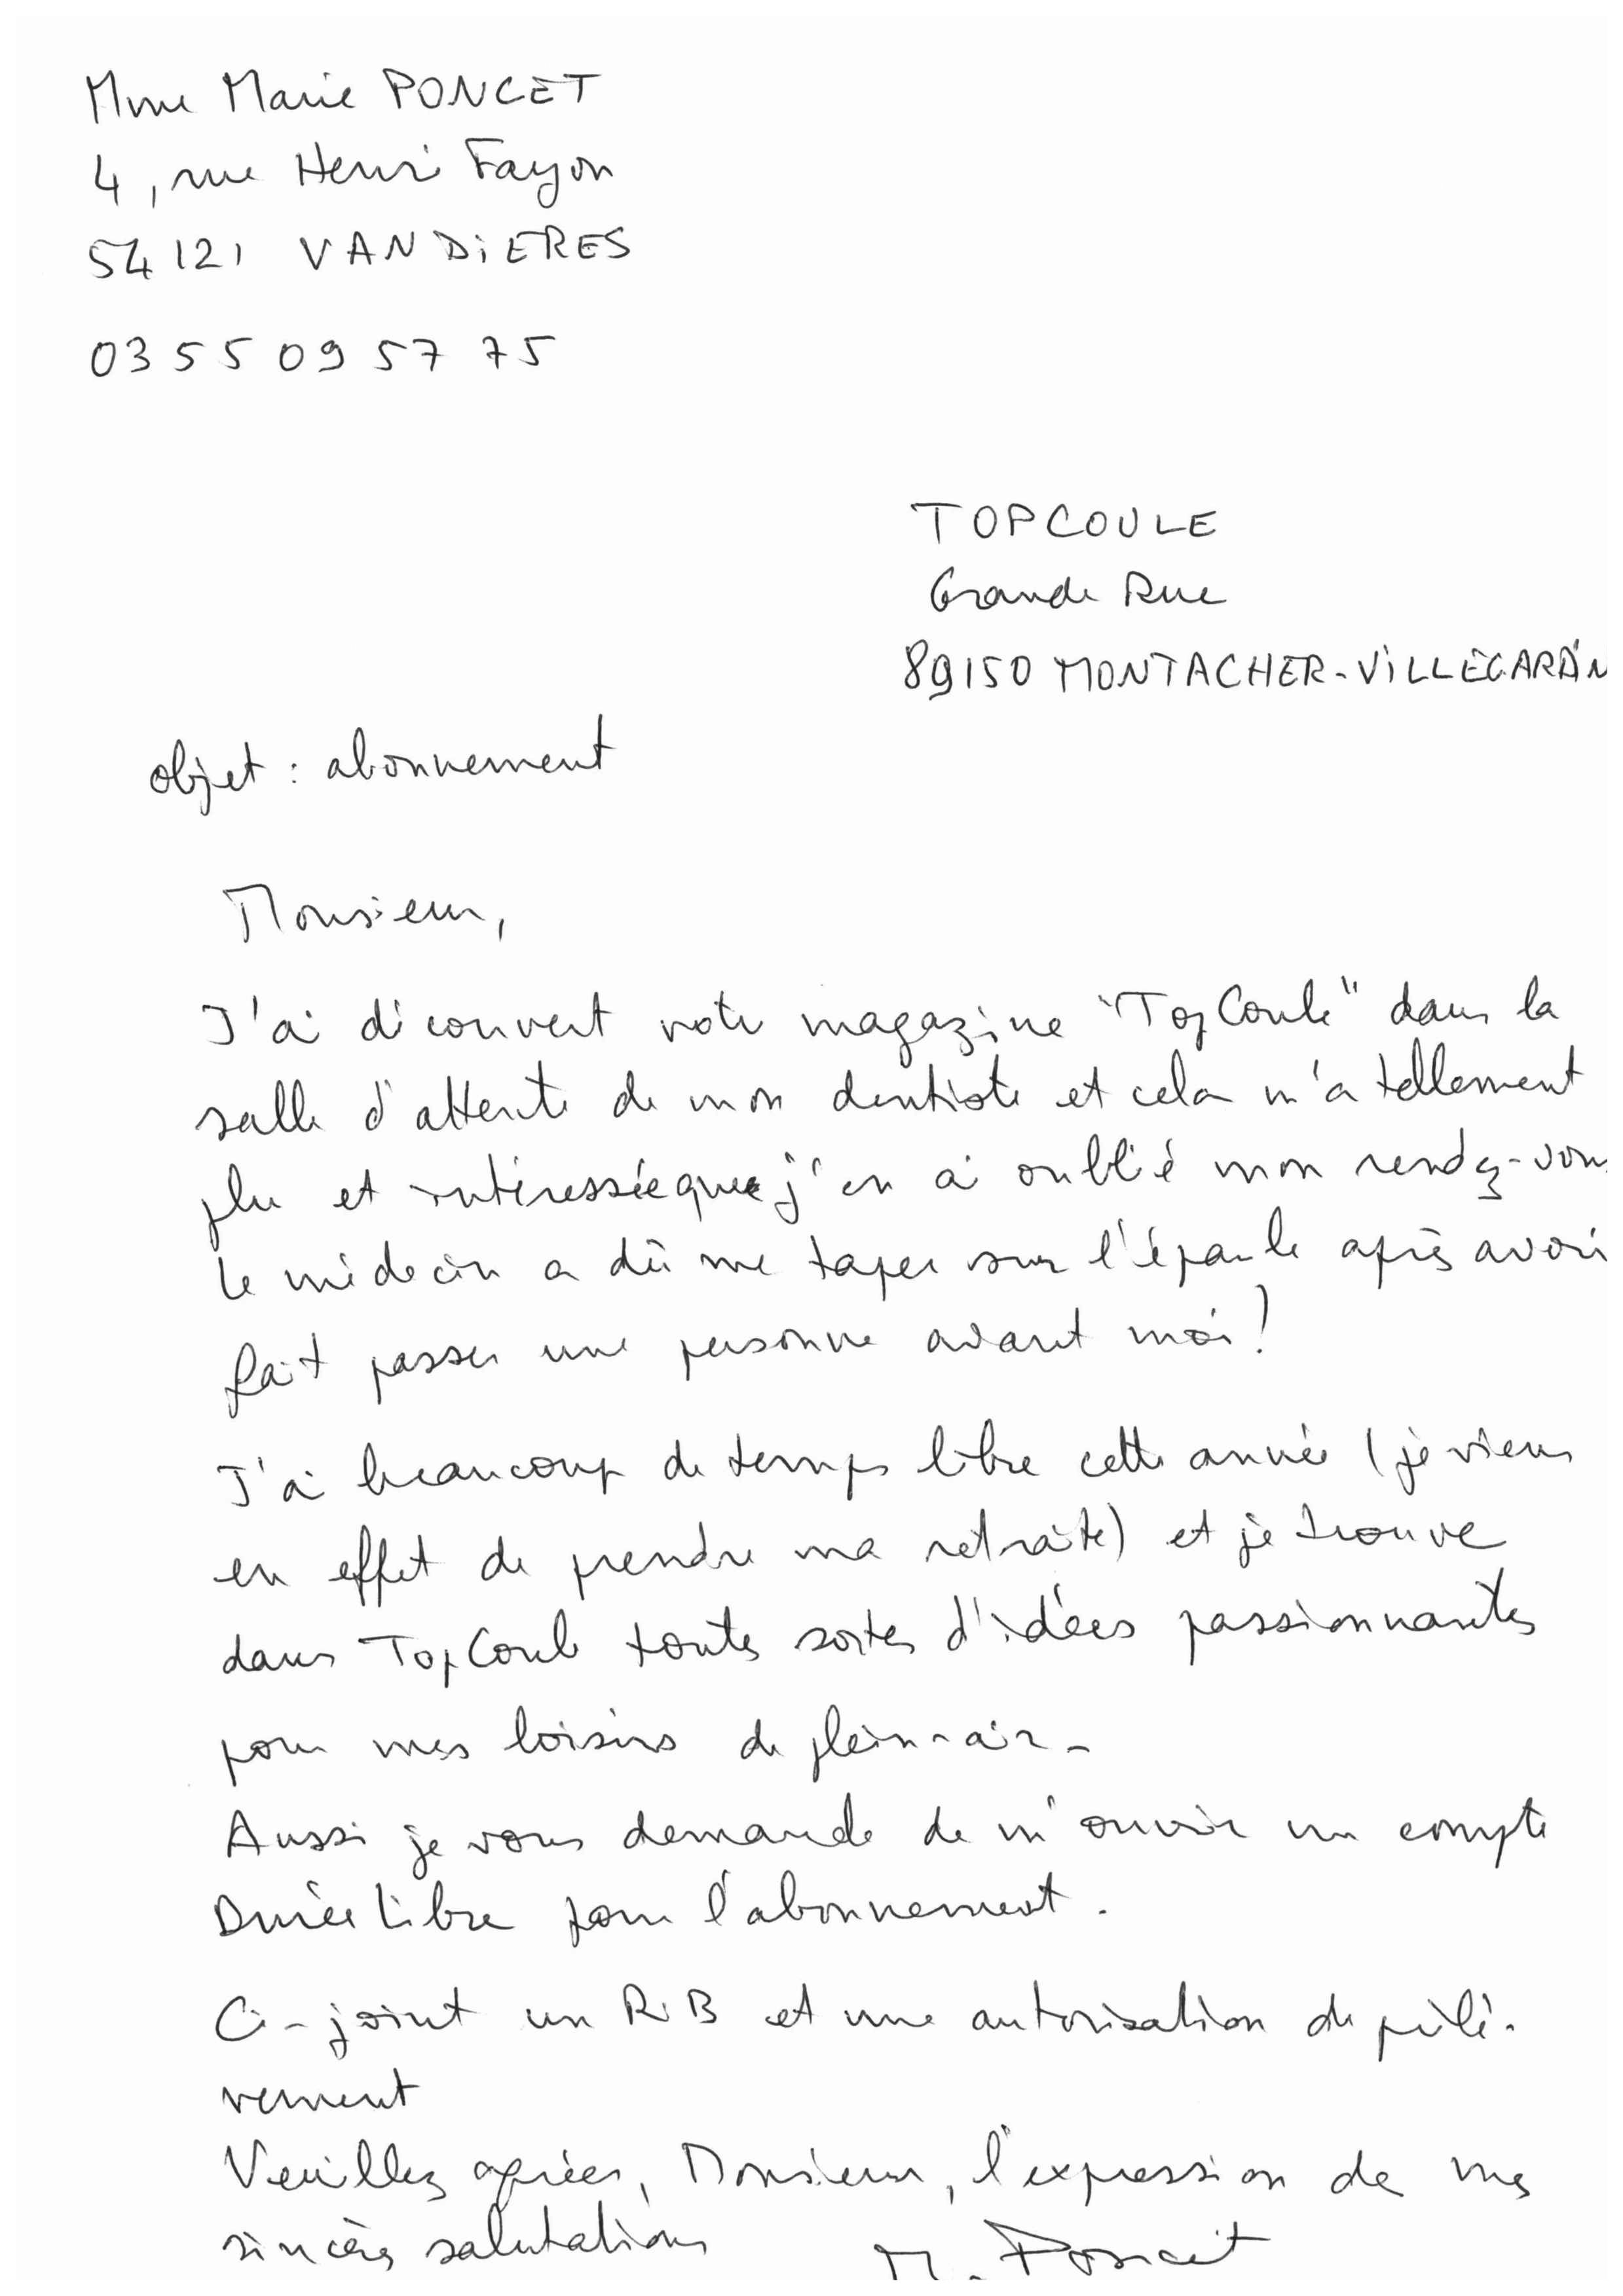 Mme Marie PONCET
4, rue Henri Fayon
54121 VANDIERES
03 55 09 57 75
TOPCOULE
Grande Rue
89150 MONTACHER-VILLEGARDIN
objet : abonnement
Monsieur,
J'ai découvert votre magazine "TopCoule" dans la
salle d'attente de mon dentiste et cela m'a tellement
plu et intéressée que j'en ai oublié mon rendez-vous
le médecin a dû me taper sur l'épaule après avoir
fait passer une personne avant moi !
J'ai beaucoup de temps libre cette année (je viens
en effet de prendre ma retraite) et je trouve
dans TopCoule toutes sortes d'idées passionnantes
pour mes loisirs de plein-air.
Aussi je vous demande de m'ouvrir un compte
Durée Libre pour l'abonnement.
Ci-joint un RIB et une autorisation de prélè-
vement
Veuillez agréer, Monsieur, l'expression de mes
sincères salutations M. Poncet